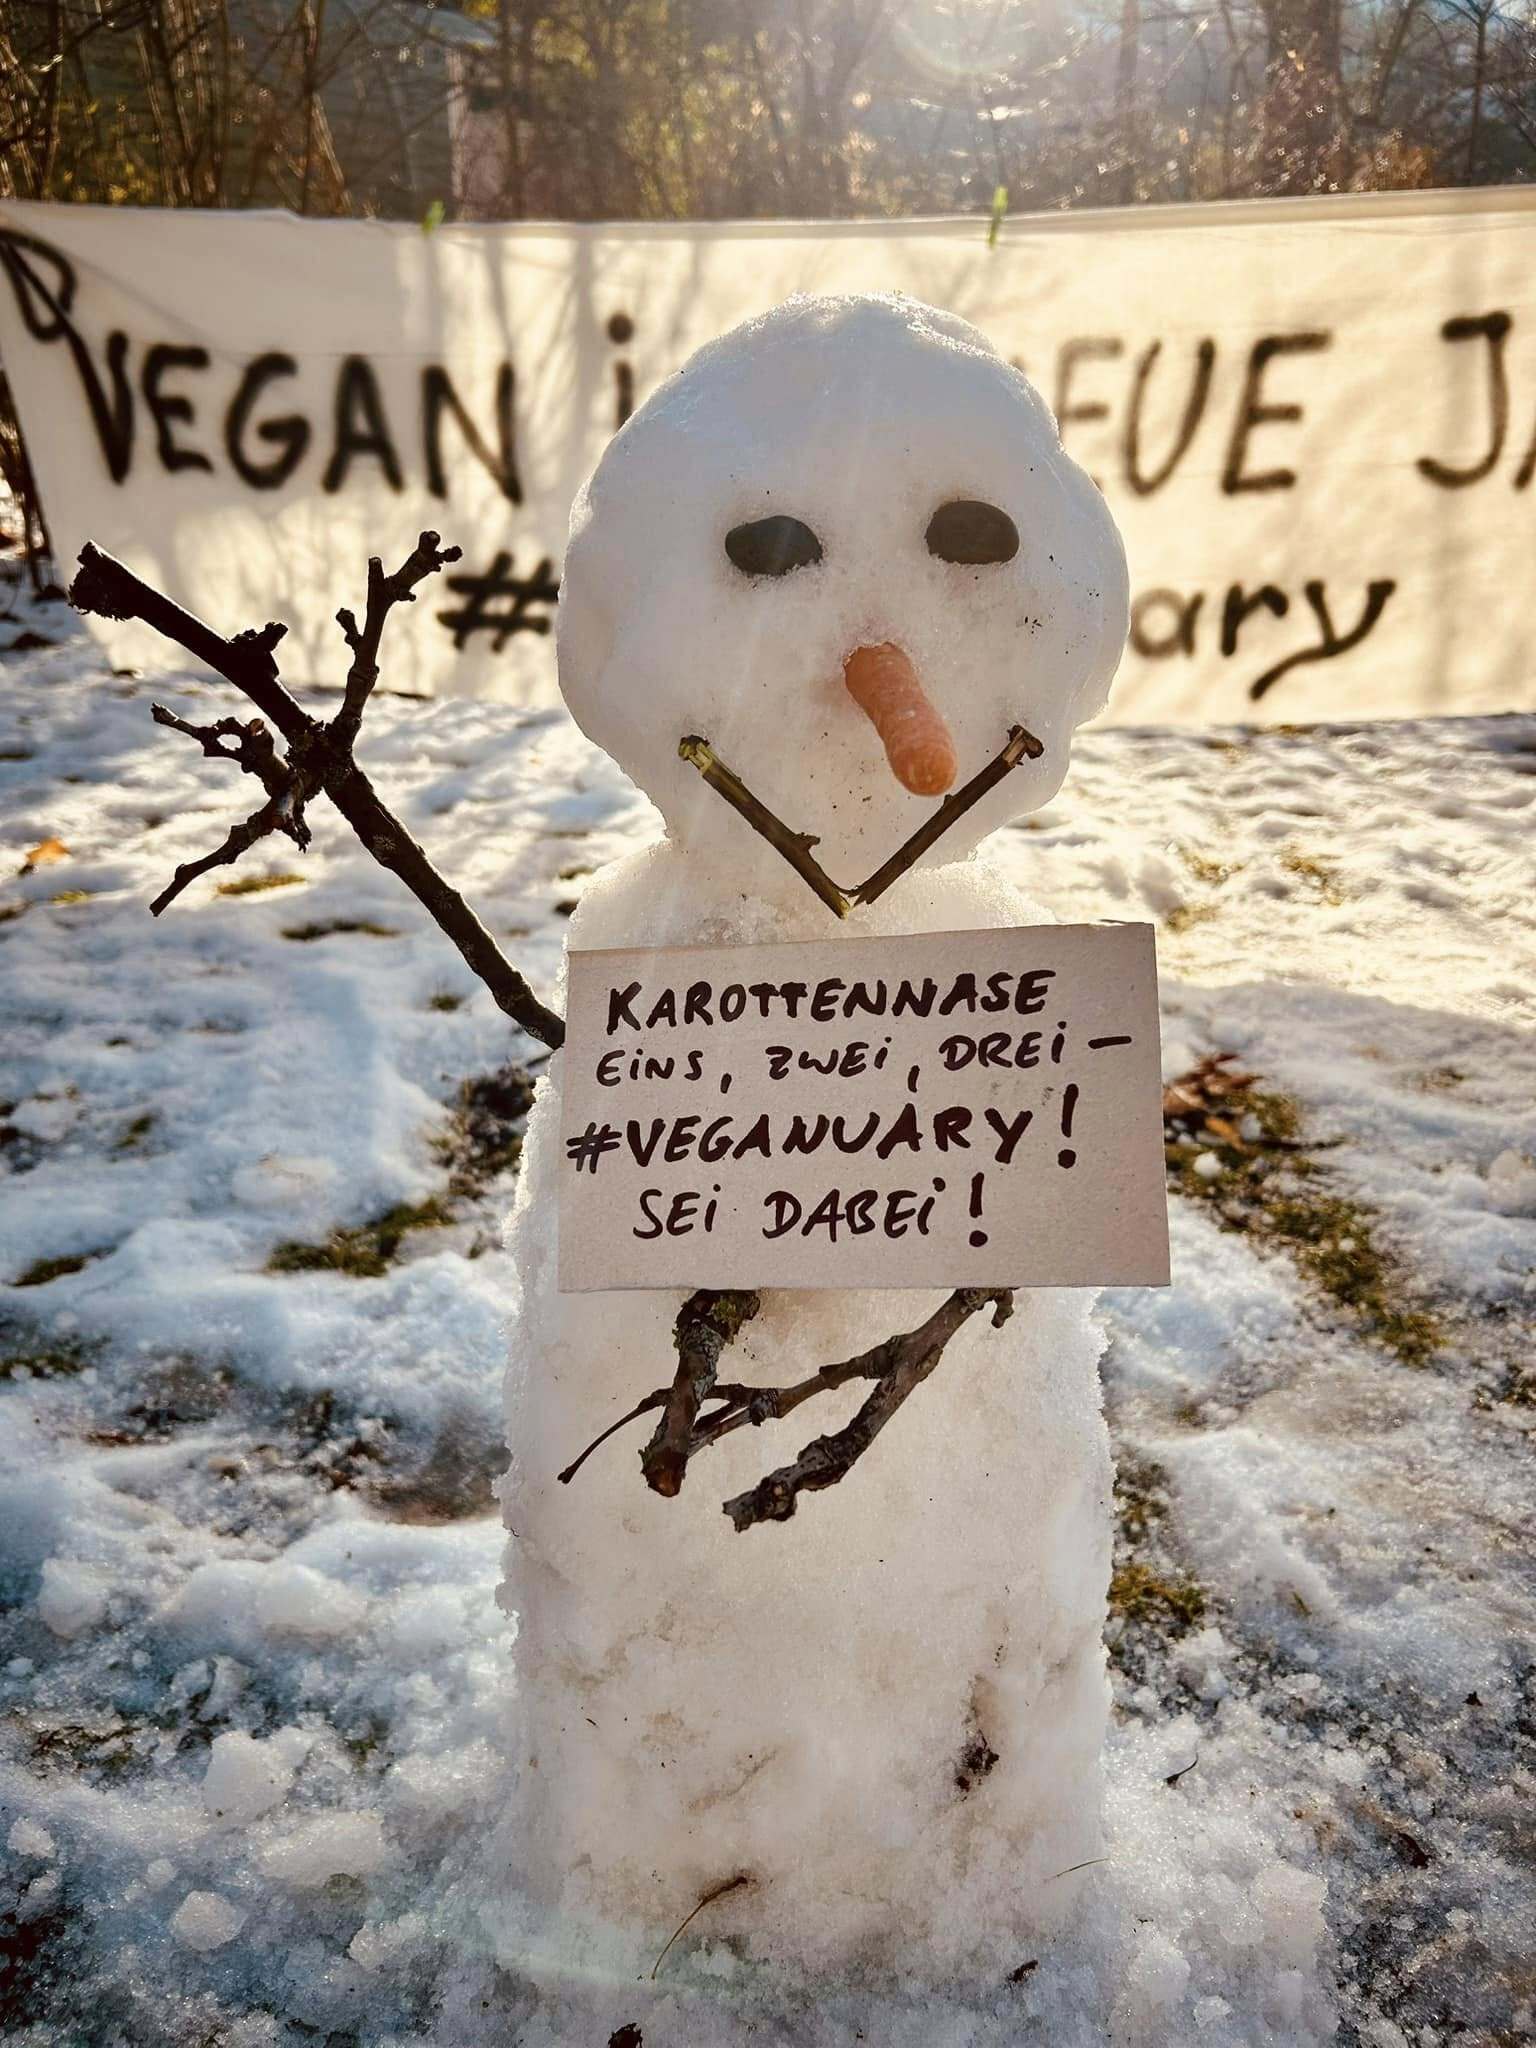 VEGAN
EUE
#
ary
KAROTTENNASE
EiNS, ZWEi, DREi –
#VEGANUARY!
SEi DABEi!